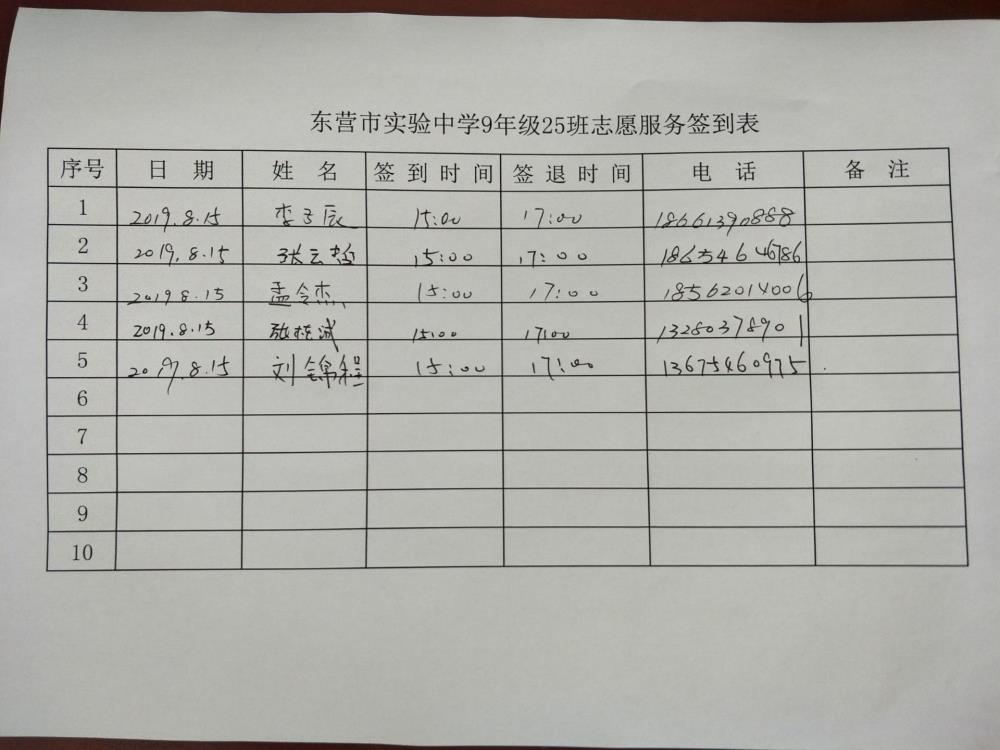 东营市实验中学9年级25班志愿服务签到表
序号 日期 姓名 签到时间 签退时间 电话 备注
1 2019.8.15 李子辰 15:00 17:00 18661390888
2 2019.8.15 张云哲 15:00 17:00 18654646786
3 2019.8.15 孟令杰 15:00 17:00 18562014006
4 2019.8.15 张 15:00 17:00 13280378901
5 2019.8.15 刘锦程 15:00 17:00 13675460975
6
7
8
9
10